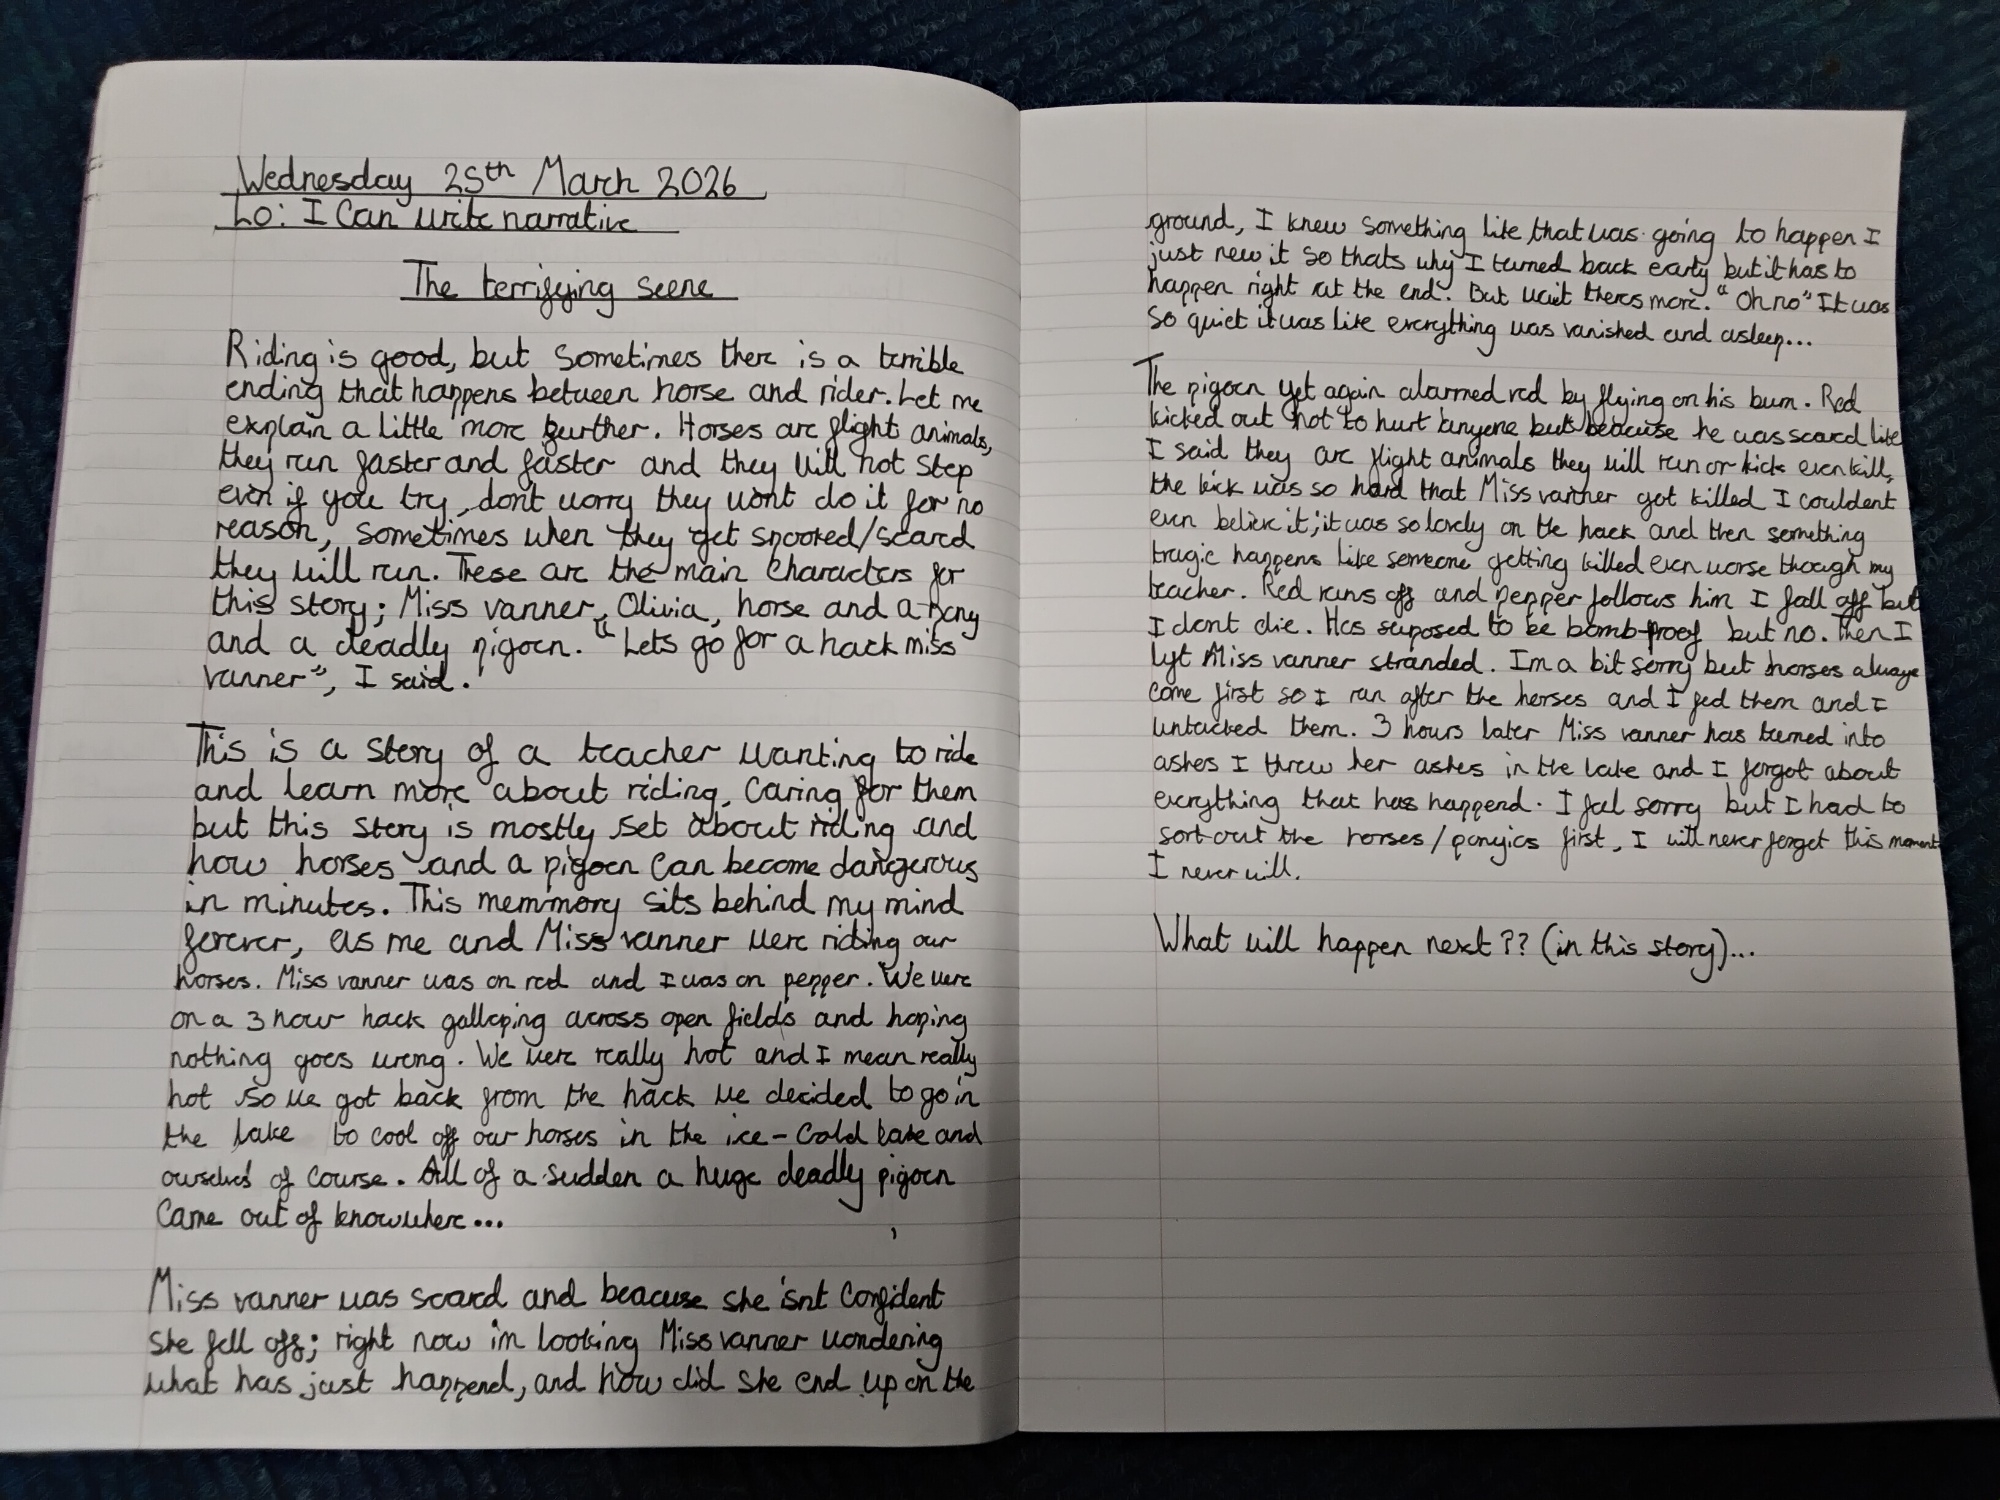 Wednesday 25th March 2026
Lo: I Can write narrative
The terrifying scene
Riding is good, but sometimes there is a terrible
ending that happens between horse and rider. Let me
explain a little more further. Horses are flight animals,
they run faster and faster and they will not step
even if you try, dont worry they wont do it for no
reason, sometimes when they get spooked/scared
they will run. These are the main characters for
this story; Miss vanner, Olivia, horse and a pony
and a deadly pigoen. "Lets go for a hack miss
vanner", I said.
This is a story of a teacher wanting to ride
and learn more about riding, Caring for them
but this story is mostly set about riding and
how horses and a pigoen can become dangerous
in minutes. This memmory sits behind my mind
forever, as me and Miss vanner were riding our
horses. Miss vanner was on red and I was on pepper. We were
on a 3 hour hack galloping across open fields and hoping
nothing goes wrong. We were really hot and I mean really
hot so we got back from the hack we decided to go in
the lake to cool off our horses in the ice-cold lake and
ourselves of course. All of a sudden a huge deadly pigoen
came out of knowwhere...
Miss vanner was scared and beacuse she isnt Confident
she fell off; right now im looking Miss vanner wondering
what has just happend, and how did she end up on the
ground, I knew something like that was going to happen I
just new it so thats why I turned back early but it has to
happen right at the end. But wait theres more. "Oh no" It was
so quiet it was like everything was vanished and asleep...
The pigoen yet again alarmed red by flying on his bum. Red
kicked out not to hurt anyone but beacuse he was scared like
I said they are flight animals they will run or kick even kill,
the kick was so hard that Miss vanner got killed I couldent
even believe it; it was so lovely on the hack and then something
tragic happens like someone getting killed even worse though my
teacher. Red runs off and pepper follows him I fall off but
I dont die. Hes suposed to be bomb-proof but no. Then I
left Miss vanner stranded. Im a bit sorry but horses always
come first so I ran after the horses and I fed them and I
untacked them. 3 hours later Miss vanner has turned into
ashes I threw her ashes in the lake and I forgot about
everything that has happend. I feel sorry but I had to
sort out the horses/ponyies first, I will never forget this moment
I never will.
What will happen next?? (in this story)...